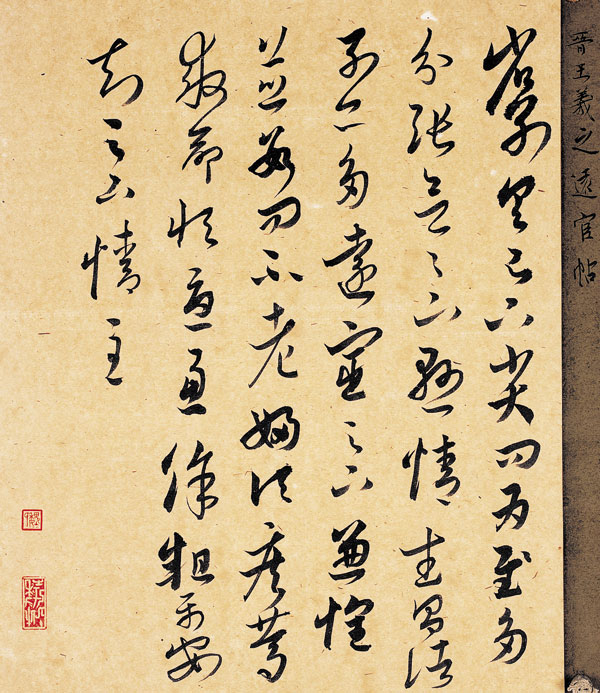 晉王羲之遠宦帖
省別具足下小大問為慰多
分張念足下懸情武昌諸
子亦多遠宦足下兼懷
並數問不老婦頃疾篤
救命恆憂慮餘粗平安
知足下情至